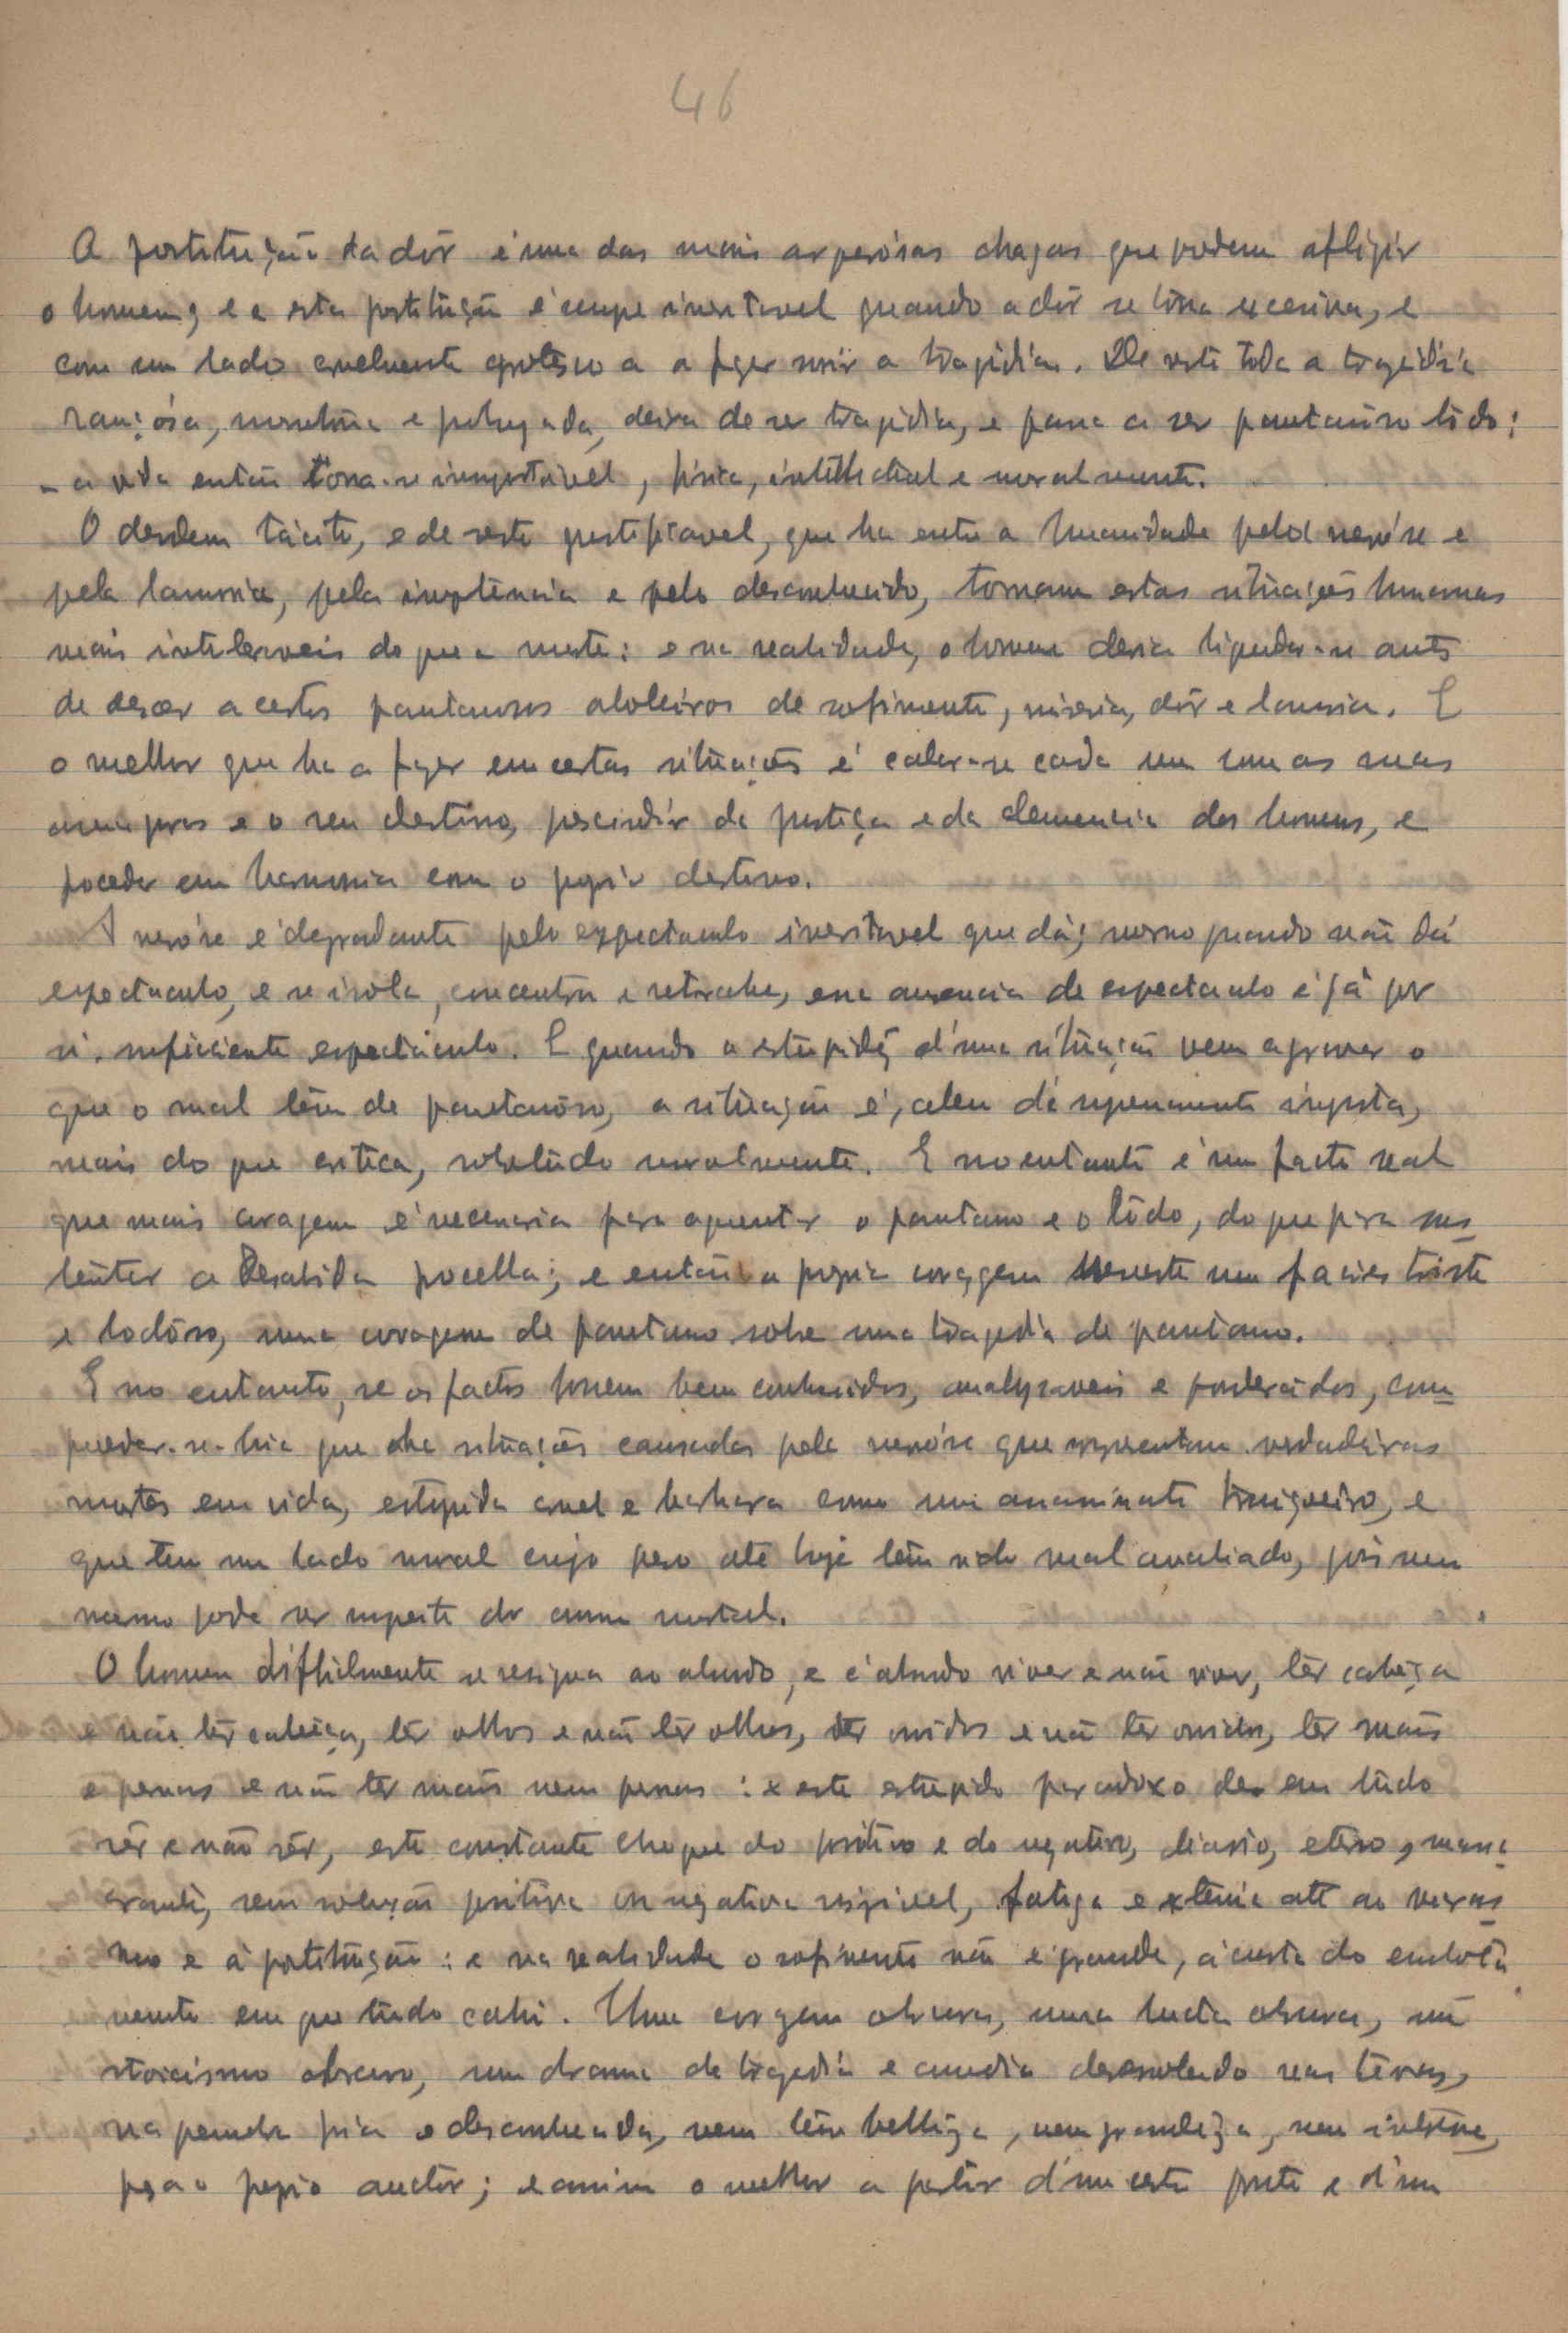 46
A prostituição da dôr é uma das mais asperósas chagas que podem afligir
o homem; e a esta prostituição é sempre inevitavel quando a dôr se torna excessiva, e
com um lado cruelmente grotesco a a fazer sorrir a tragédia. De resto toda a tragédia
rançósa, monótona e prolongada, deixa de ser tragédia, e passa a ser pantanoso lôdo;
- a vida então torna-se insuportável, física, intellectual e moralmente.
O desdem tácito, e de resto justificavel, que ha entre a humanidade pela nevróse e
pela lamuria, pela impotencia e pelo desconhecido, tornam estas situações humanas
mais intoleraveis do que a morte: e na realidade, o homem devia liquidar-se antes
de descer a certos pantanosos atoleiros de sofrimento, miseria, dôr e lamuria. E
o melhor que ha a fazer em certas situações é calar-se cada um com as suas
e o seu destino, prescindir da justiça e da clemencia dos homens, e
proceder em harmonia com o proprio destino.
A nevróse é degradante pelo espectaculo inevitavel que dá; mesmo quando não dá
espectaculo, e se isola, concentra e retrahe, essa ausencia de espectaculo é já por
si sufficiente espectáculo. E quando a estupidez d'uma situação vem agravar o
que o mal têm de pantanôso, a situação é, alem de supremamente injusta,
mais do que critica, sobretudo moralmente. E no entanto é um facto real
que mais coragem é necessaria para aguentar o pantano e o lôdo, do que para sus-
tentar a desabrida procella; e então a propria coragem reveste um facies triste
e lodôso, uma coragem de pantano sobre uma tragedia de pantano.
E no entanto, se os factos fossem bem conhecidos, analysaveis e ponderados, com-
preender-se-hia que ha situações causadas pela nevróse que representam verdadeiras
mortes em vida, estupida cruel e barbara como um assassinato, e
que tem um lado moral cujo peso até hoje têm sido mal avaliado, pois nem
mesmo pode ser suposto do comum mortal.
O homem difficilmente se resigna ao absurdo, e é absurdo viver e não viver, têr cabeça
e não têr cabeça, têr olhos e não têr olhos, ter ouvidos e não ter ouvidos, ter mãos
e pernas e não ter mãos nem pernas: e este estupido paradoxo de em tudo
sêr e não sêr, este constante choque do positivo e do negativo, diario, eterno, massa-
crante, sem solução positiva ou negativa, fatiga e extenúa até ao maras-
mo e á prostituição: e na realidade o sofrimento não é grande, á custa do
em que tudo cahi. Uma coragem obscura, numa lucta obscura, um
stoicismo obscuro, um drama de tragedia e comedia desenrolando nas trevas,
na penumbra fria e desconhecida, nem têm belleza, nem grandeza, nem interesse,
para o proprio auctôr; e assim o melhor a partir d'um certo ponto e d'um